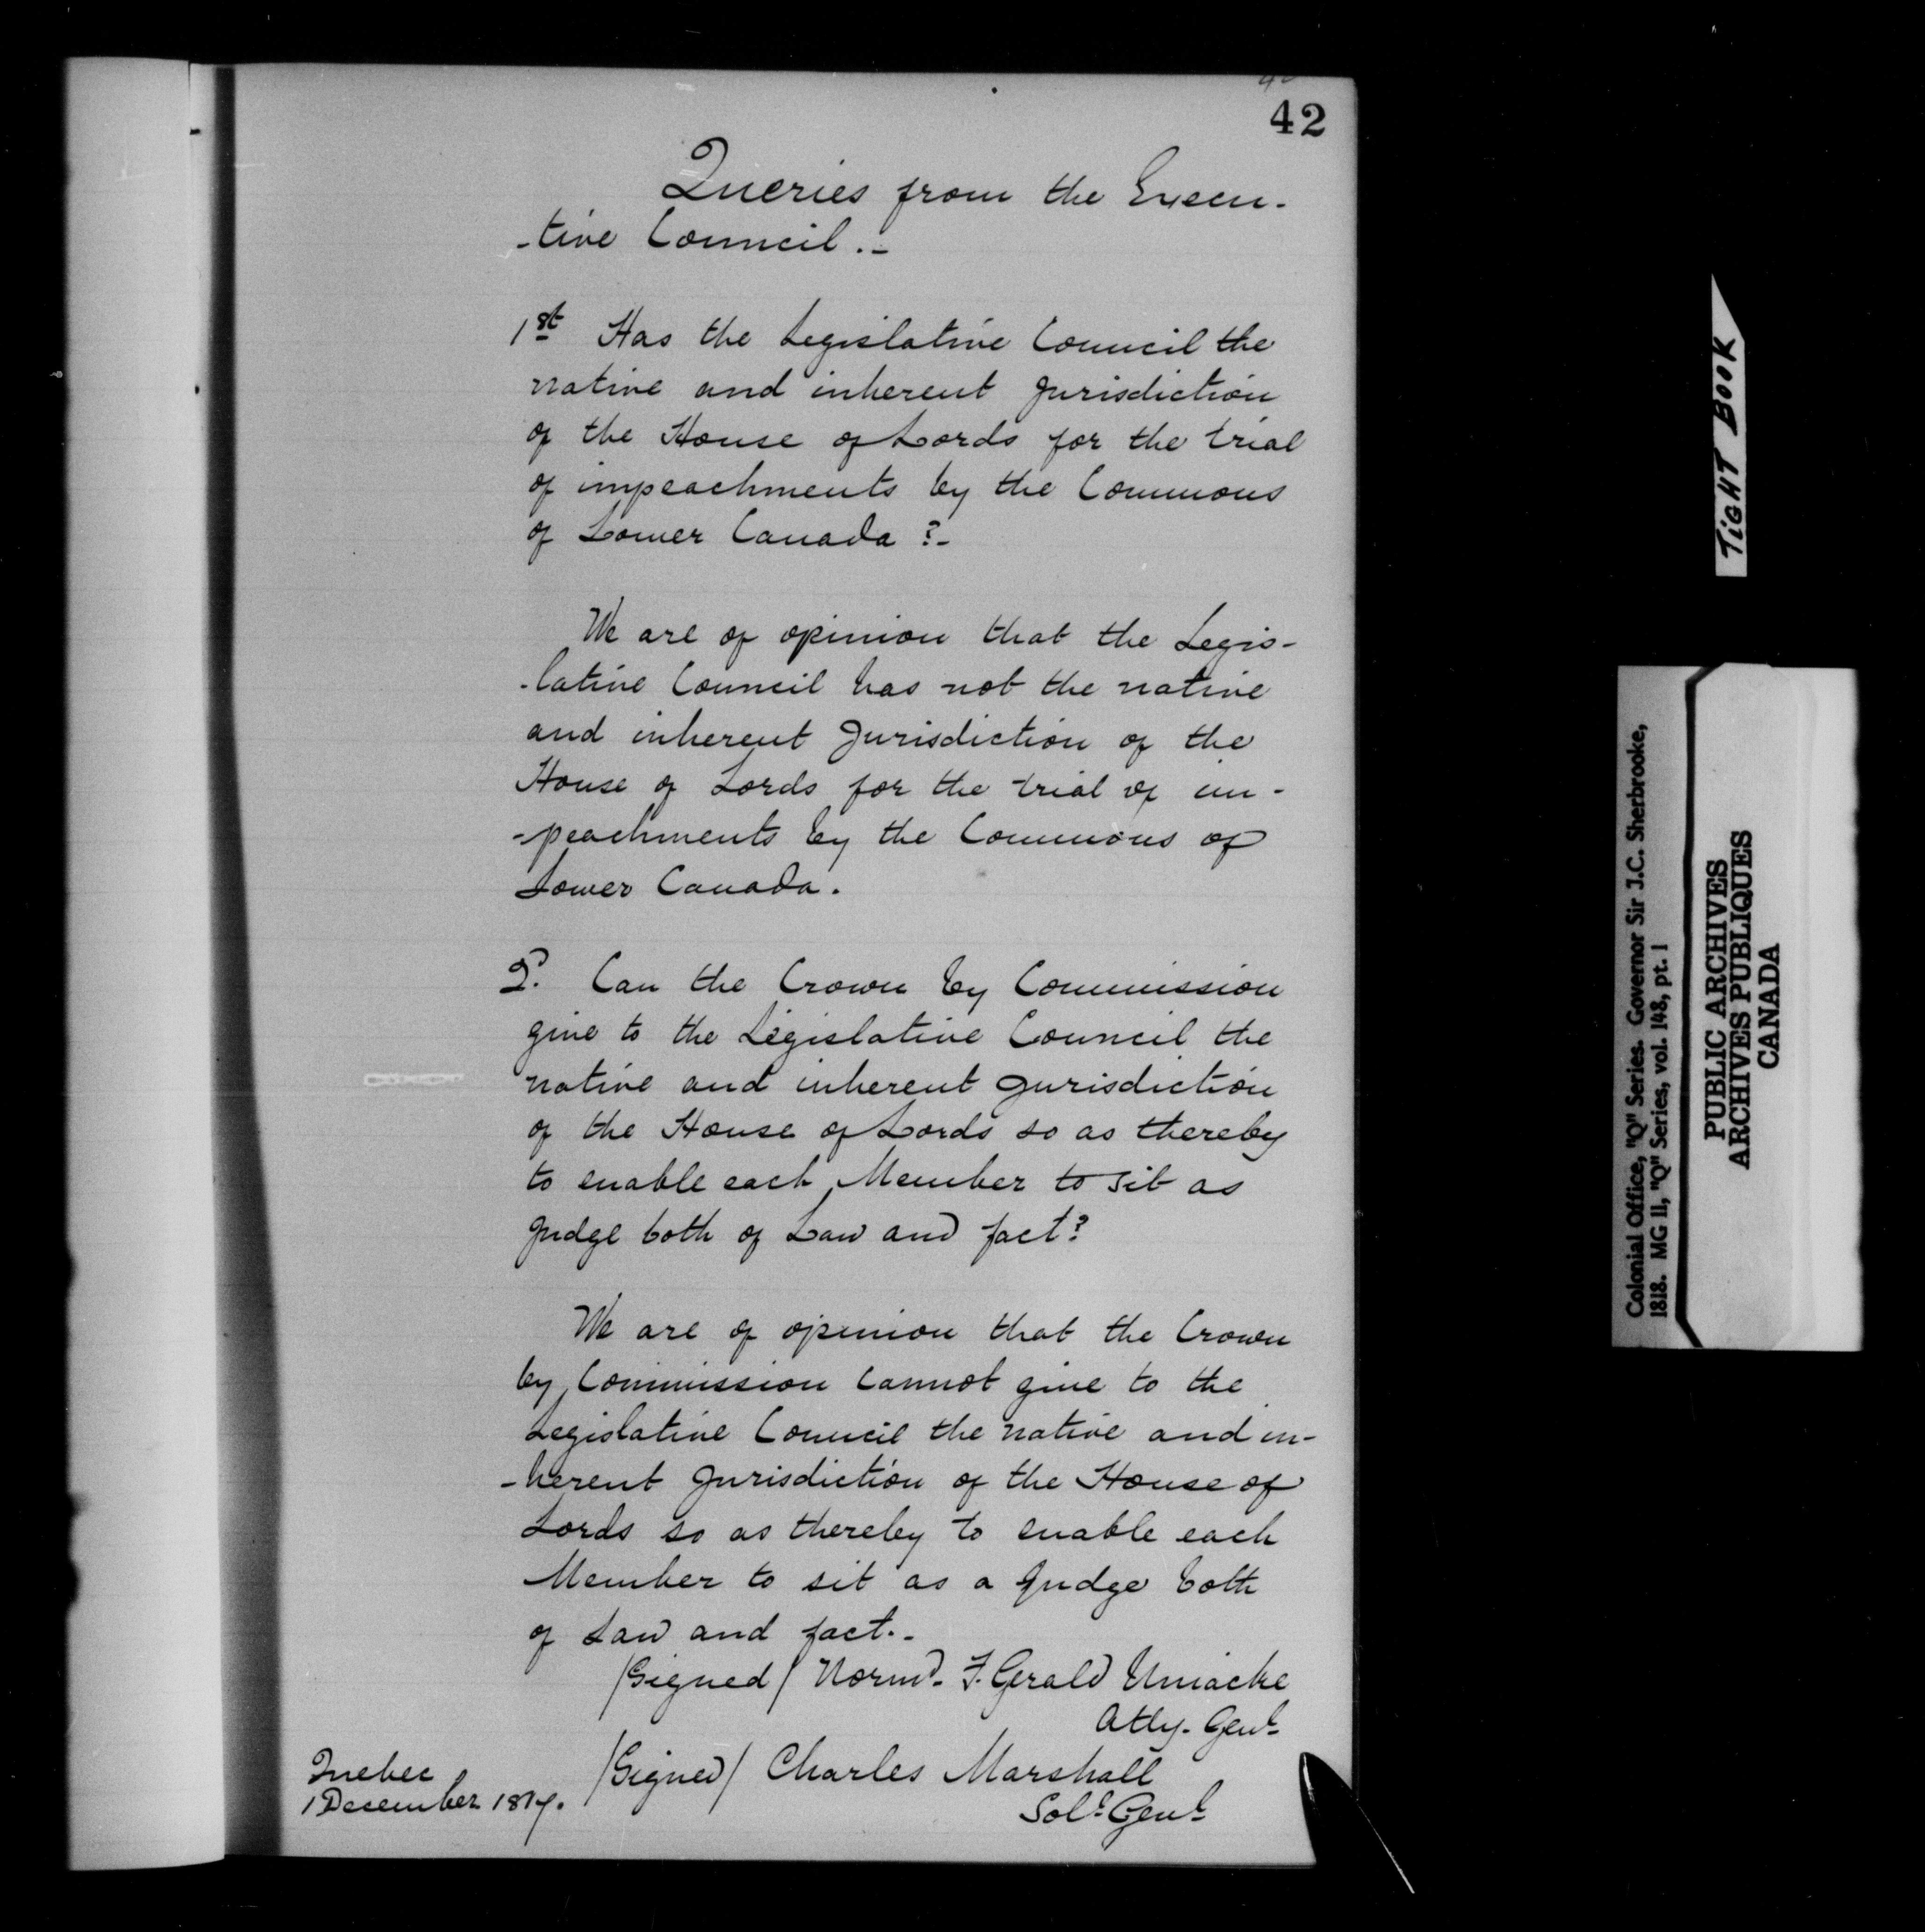 42
Queries from the Execu-
-tive Council.-
1st Has the Legislative Council the
native and inherent Jurisdiction
of the House of Lords for the trial
of impeachments by the Commons
of Lower Canada?-
We are of opinion that the Legis-
-lative Council has not the native
and inherent Jurisdiction of the
House of Lords for the trial of im-
-peachments by the Commons of
Lower Canada.
2. Can the Crown by Commission
give to the Legislative Council the
native and inherent Jurisdiction
of the House of Lords so as thereby
to enable each Member to sit as
Judge both of Law and fact?
We are of opinion that the Crown
by Commission cannot give to the
Legislative Council the native and in-
-herent Jurisdiction of the House of
Lords so as thereby to enable each
Member to sit as a Judge both
of Law and fact.-
/Signed/ Normd. F. Gerald Uniacke
Atty. Genl
/Signed/ Charles Marshall
Soll Genl
Quebec
1 December 1817.
TIGHT BOOK
Colonial Office, "Q" Series. Governor Sir J.C. Sherbrooke,
1818. MG 11, "Q" Series, vol. 148, pt. 1
PUBLIC ARCHIVES
ARCHIVES PUBLIQUES
CANADA